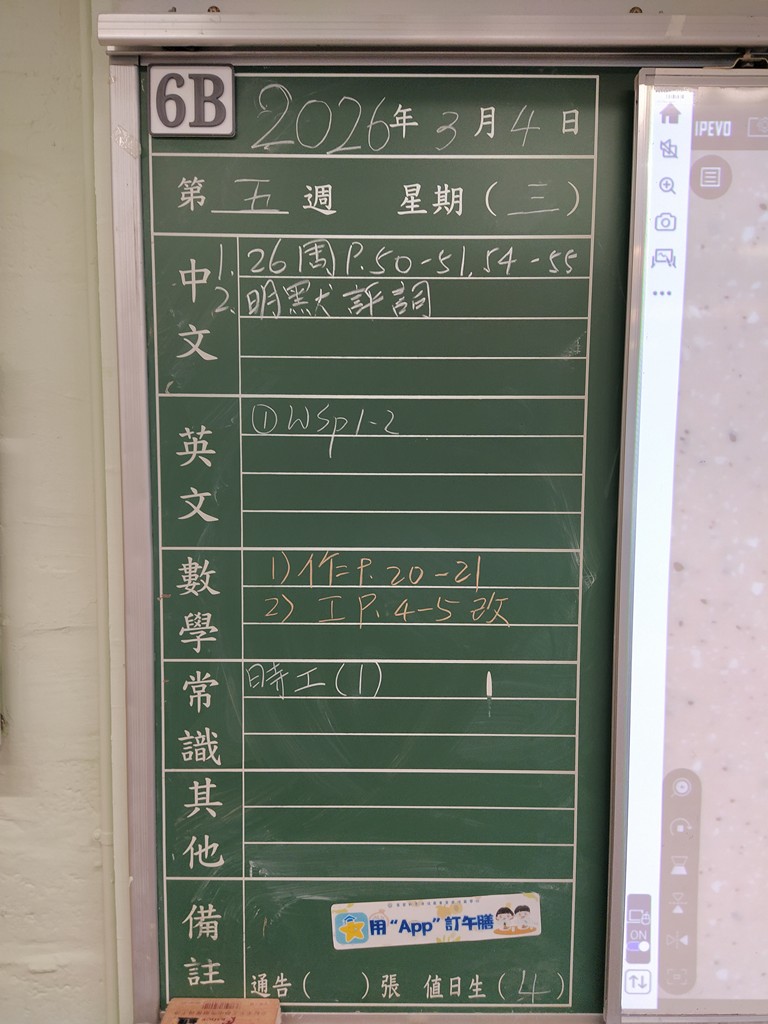 6B
2026年3月4日
第五週 星期(三)
中文
1. 26周P.50-51,54-55
2. 明默評詞
英文
①WSp1-2
數學
1)作=P.20-21
2) 工P.4-5改
常識
時工(1)
其他
備註
用“App”訂午膳
通告( )張 值日生(4)
IPEVO
ON